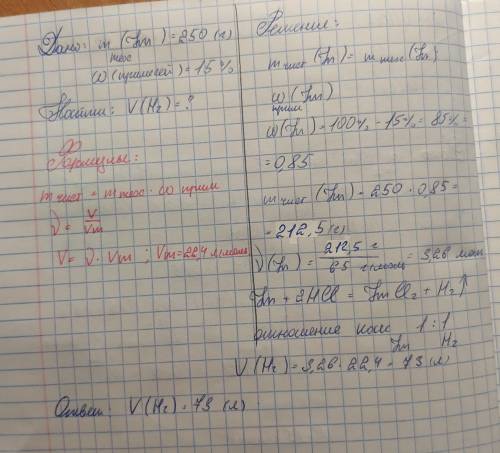 Дано: m (Zn) = 250 (г)
техн
ω (примесей) = 15 %
Найти: V(H₂) = ?
Формулы:
m чист = m техн · ω прим
ν = V/Vm
V = ν · Vm ; Vm = 22,4 л/моль
Решение:
m чист (Zn) = m техн (Zn)
ω (Zn)
прим
ω (Zn) = 100% - 15% = 85% =
= 0,85
m чист (Zn) = 250 · 0,85 =
= 212,5 (г)
ν (Zn) = 212,5 г / 65 г/моль = 3,26 мол
Zn + 2HCl = ZnCl₂ + H₂↑
отношение 1 : 1
Zn H₂
V (H₂) = 3,26 · 22,4 = 73 (л)
Ответ: V (H₂) = 73 (л)